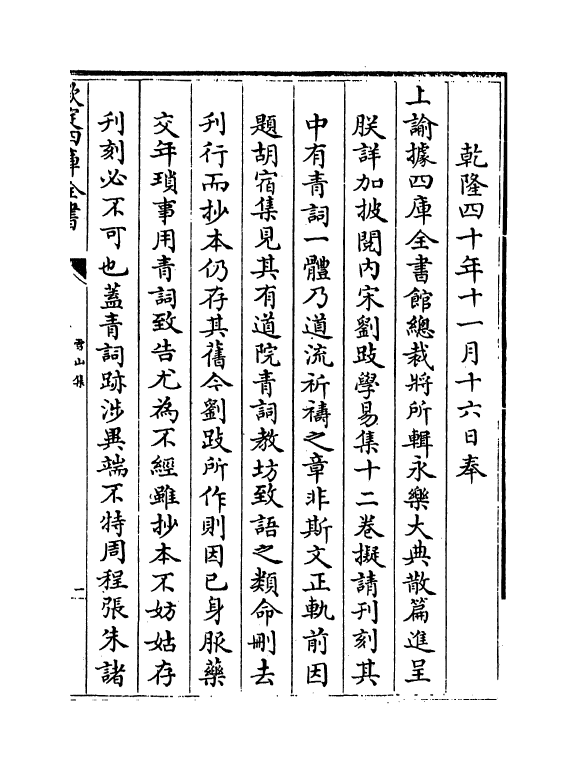 乾隆四十年十一月十六日奉
上諭據四庫全書館總裁將所輯永樂大典散篇進呈
朕詳加披閱內宋劉跂學易集十二卷擬請刊刻其
中有青詞一體乃道流祈禱之章非斯文正軌前因
題胡宿集見其有道院青詞教坊致語之類命刪去
刊行而抄本仍存其舊今劉跂所作則因已身服藥
交年瑣事用青詞致告尤為不經雖抄本不妨姑存
刊刻必不可也蓋青詞跡涉異端不特周程張朱諸
欽定四庫全書
雪山集
二